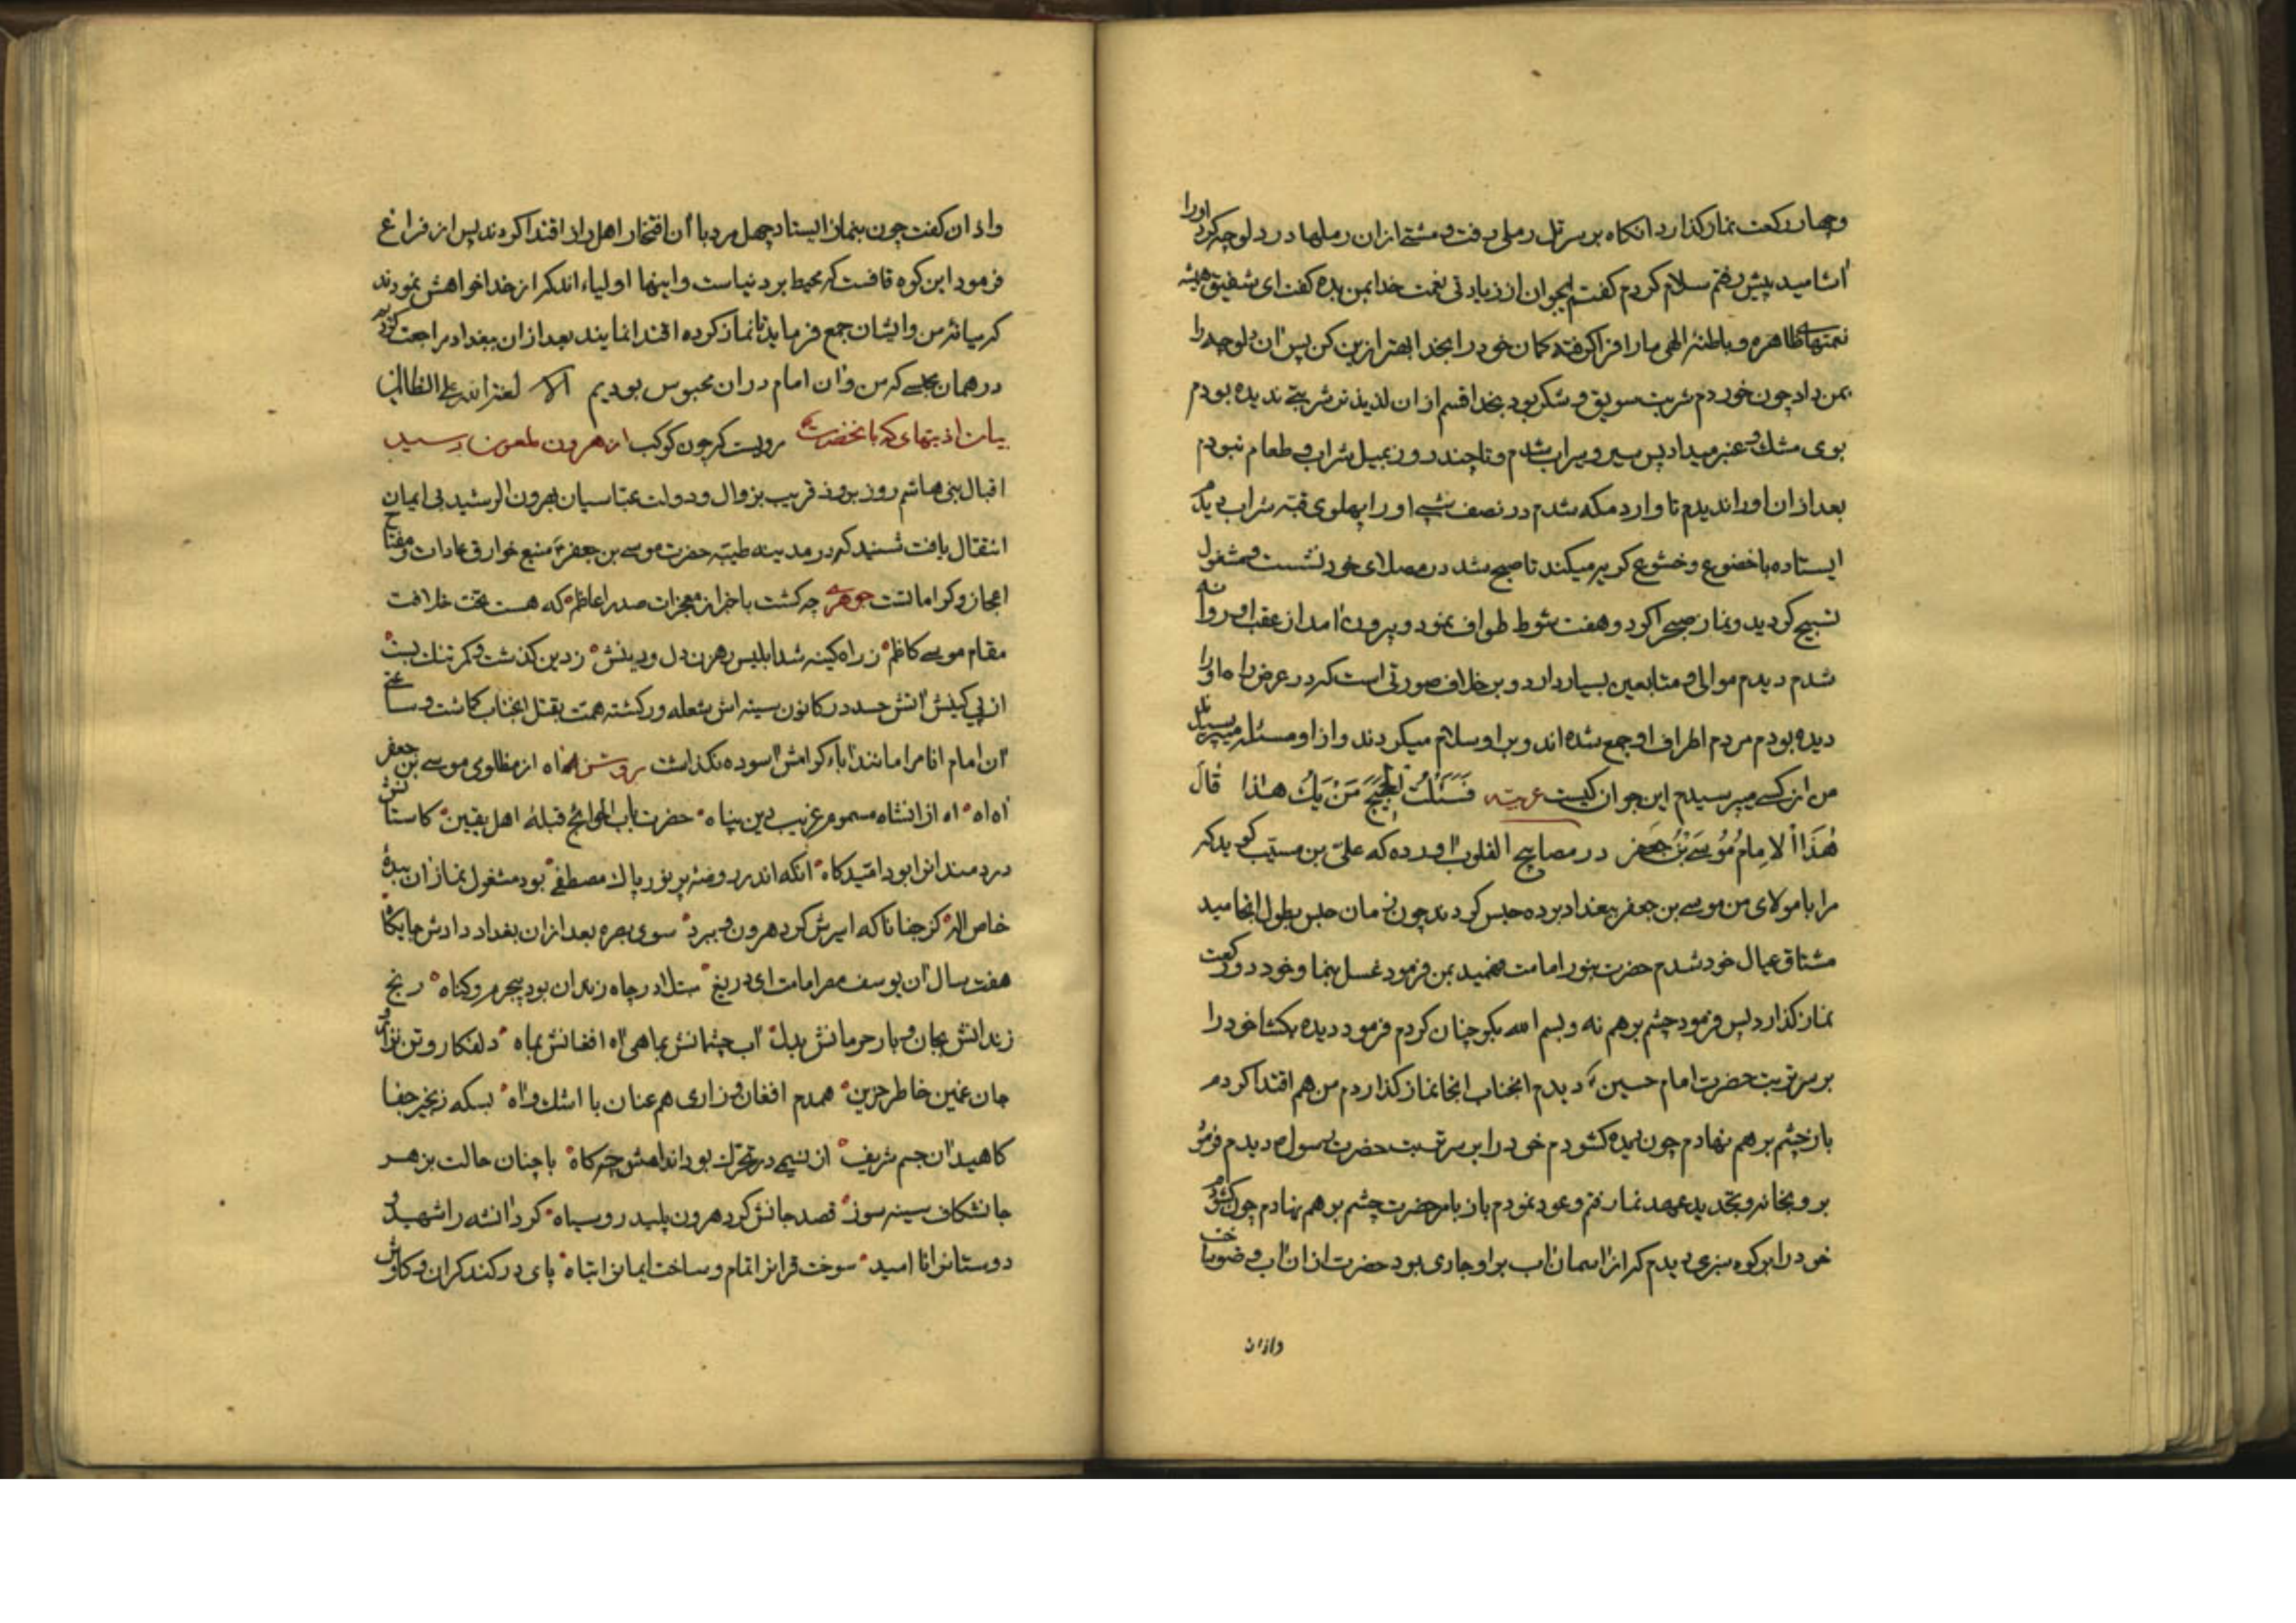 وچهار رکعت نماز کذارد انکاه بر سر تل رملی رفت و مشتی از ان رملها در دلوچه کرد اورا
آشامید پیش رفتم سلام کردم کفتم ایجوان از زیادتی نعمت خدا بمن بده کفت ای شقیق همیشه
نعمتهای ظاهره و باطنهٔ الهی مارا فرا کرفته کمان خود را بخدا بهتر ازین کن پس آن دلوچه را
بمن داد چون خوردم شربت سویق و شکر بود بخدا قسم از ان لذیذتر شربتی ندیده بودم
بوی مشک و عنبر میداد پس سیر و سیراب شدم و تا چند روز بمیل شراب و طعام نبودم
بعد از ان اورا ندیدم تا وارد مکه شدم در نصف شبی اورا پهلوی قبه شراب دیدم
ایستاده با خضوع و خشوع کریه میکند تا صبح شد در مصلای خود نشست و مشغول
تسبیح کردید و نماز صبح را کرد و هفت شوط طواف نمود و بیرون آمد از عقب او روانه
شدم دیدم موالی و متابعین بسیار دارد و بر خلاف صورتی است که در عرض راه اورا
دیده بودم مردم اطراف او جمع شده اند و بر او سلام میکردند و از او مسئله میپرسیدند
من از کسی میپرسیدم این جوان کیست عربیه فَسَئَلْتُ الحَجیجَ مَنْ یَکُ هذا قالَ
هٰذَا الاِمامُ مُوسَی بْنُ جَعفر در مصابیح القلوب آورده که علی بن مسیب کوید که
مرا با مولای من موسی بن جعفر ببغداد برده حبس کردند چون زمان حبس بطول انجامید
مشتاق عیال خود شدم حضرت بنور امامت فهمید بمن فرمود غسل بنما و خود دو رکعت
نماز کذارد پس فرمود چشم بر هم نه و بسم الله بکو چنان کردم فرمود دیده بکشا خود را
بر سر تربت حضرت امام حسین دیدم انجناب انجا نماز کذارد من هم اقتدا کردم
باز چشم بر هم نهادم چون دیده کشودم خود را بر سر تربت حضرت رسول دیدم فرمود
برو بخانه و تجدید عهد نما رفتم و عود نمودم باز بامر حضرت چشم بر هم نهادم چون کشودم
خود را بر کوه سبزی دیدم که از آسمان آب بر او جاری بود حضرت از ان آب وضو ساخت
و از ان
و اذان کفت چون بنماز ایستاد چهل مرد با آن افتخار اهل راز اقتدا کردند پس از فراغ
فرمود این کوه قافست که محیط بر دنیاست و اینها اولیاء اند که از خدا خواهش نمودند
که میانهٔ من و ایشان جمع فرماید تا نماز کرده اقتدا نمایند بعد از ان ببغداد مراجعت کردیم
در همان مجلسی که من و آن امام در ان محبوس بودیم الا لعنة الله علی الظالمین
بیان اذیتهای که بانحضرت از هرون ملعون رسید مرویست که چون کوکب
اقبال بنی هاشم روز بروز قریب بزوال و دولت عباسیان بهرون الرشید بی ایمان
انتقال یافت شنید که در مدینه طیبه حضرت موسی بن جعفر منبع خوارق عادات و مفتاح
اعجاز و کراماتست جوهری چه کشت با خبر از معجزات صدر اعاظم که هست تخت خلافت
مقام موسی کاظم ز راه کینه شد ابلیس رهزن دل و دینش ز دین کذشت و کمر تنک بست
از پی کینش آتش حسد در کانون سینه اش شعله ور کشته همت بقتل انجناب کماشت و ساعتی
آن امام انام را مانند آباء کرامش آسوده نکذاشت آه از مظلومی موسی بن جعفر
آه آه آه از انشاه مسموم غریب دین پناه حضرت باب الحوائج قبلهٔ اهل یقین کاستانش
دردمندانرا بود امیدکاه آنکه اندر روضهٔ پر نور پاک مصطفی بود مشغول نماز آن بندهٔ
خاص اله کز جفا ناکه اسیرش کرد هرون و ببرد سوی بصره بعد از ان بغداد دادش جایکاه
هفت سال آن یوسف مصر امامت ای دریغ مبتلا در چاه زندان بود بیجرم و کناه رنج
زندانش بجان و بار حرمانش بدل آب چشمانش بماهی آه افغانش بماه دلفکار و تن نزار
جان غمین خاطر حزین همدم افغان و زاری هم عنان با اشک و آه بسکه زنجیر جفا
کاهید آن جسم شریف از نسیمی در تحرک بود اندامش چه کاه با چنان حالت بزهر
جانشکاف سینه سوز قصد جانش کرد هرون پلید رو سیاه کرد آنشه را شهید و
دوستانرا نا امید سوخت قرانرا تمام و ساخت ایمانرا تباه پای در کند کران و